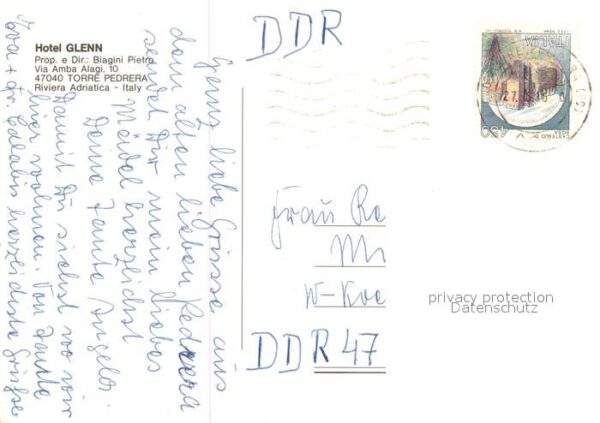 Hotel GLENN
Prop. e Dir.: Biagini Pietro
Via Amba Alagi, 10
47040 TORRE PEDRERA
Riviera Adriatica - Italy
DDR
Ganz liebe Grüsse aus
dem alten lieben Pedrera
sendet Dir mein liebes
Mädel herzlichst
Deine Tante Angela.
Damit Du siehst wo wir
wohnen. Von Tante
Eva + herzlichste Grüße
Frau Re
Mi
W-Koe
DDR 47
privacy protection
Datenschutz